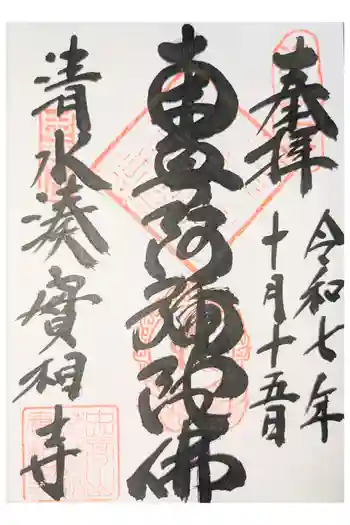 奉拝
令和七年
十月十五日
南無阿彌陀佛
清水湊實相寺